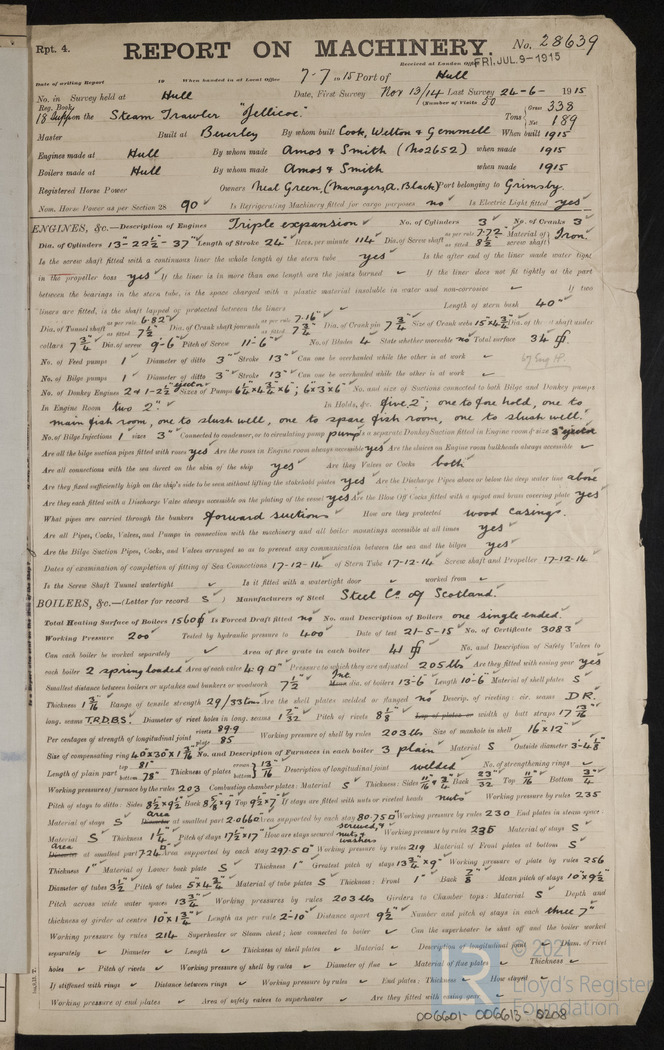 Rpt. 4. REPORT ON MACHINERY. No. 28639
Received at London Office FRI. JUL. 9 - 1915
Date of writing Report 19 When handed in at Local Office 7-7- 1915 Port of Hull
No. in Reg. Book. Survey held at Hull Date, First Survey Nov 13/14 Last Survey 24-6- 1915
(Number of Visits 50
18 Supp on the Steam Trawler "Jellicoe" Tons { Gross 338 Net 189
Master Built at Beverley By whom built Cook, Welton & Gemmell When built 1915
Engines made at Hull By whom made Amos & Smith (No 2652) when made 1915
Boilers made at Hull By whom made Amos & Smith when made 1915
Registered Horse Power Owners Neal Green, (Managers, A. Black) Port belonging to Grimsby.
Nom. Horse Power as per Section 28 90 Is Refrigerating Machinery fitted for cargo purposes no Is Electric Light fitted yes
ENGINES, &c.—Description of Engines Triple expansion No. of Cylinders 3 No. of Cranks 3
Dia. of Cylinders 13 - 22½ - 37" Length of Stroke 24" Revs. per minute 114 Dia. of Screw shaft as per rule 7.72 as fitted 8½ Material of screw shaft Iron.
Is the screw shaft fitted with a continuous liner the whole length of the stern tube yes Is the after end of the liner made water tight
in the propeller boss yes If the liner is in more than one length are the joints burned If the liner does not fit tightly at the part
between the bearings in the stern tube, is the space charged with a plastic material insoluble in water and non-corrosive If two
liners are fitted, is the shaft lapped or protected between the liners Length of stern bush 40"
Dia. of Tunnel shaft as per rule 6.82 as fitted 7½ Dia. of Crank shaft journals as per rule 7.16" as fitted 7¾ Dia. of Crank pin 7¾ Size of Crank webs 15 x 4¾ Dia. of thrust shaft under
collars 7¾ Dia. of screw 9-6 Pitch of Screw 11-6 No. of Blades 4 State whether moveable no Total surface 34
No. of Feed pumps 1 Diameter of ditto 3" Stroke 13" Can one be overhauled while the other is at work
No. of Bilge pumps 1 Diameter of ditto 3" Stroke 13" Can one be overhauled while the other is at work
No. of Donkey Engines 2 & 1-2½" ejector Sizes of Pumps 6¼ x 4¾ x 6; 6 x 3 x 6 No. and size of Suctions connected to both Bilge and Donkey pumps
In Engine Room two 2" In Holds, &c. five, 2"; one to fore hold, one to
main fish room, one to slush well, one to spare fish room, one to slush well.
No. of Bilge Injections 1 sizes 3" Connected to condenser, or to circulating pump pump Is a separate Donkey Suction fitted in Engine room & size 3" ejector
Are all the bilge suction pipes fitted with roses yes Are the roses in Engine room always accessible yes Are the sluices on Engine room bulkheads always accessible
Are all connections with the sea direct on the skin of the ship yes Are they Valves or Cocks both
Are they fixed sufficiently high on the ship's side to be seen without lifting the stokehold plates yes Are the Discharge Pipes above or below the deep water line above
Are they each fitted with a Discharge Valve always accessible on the plating of the vessel yes Are the Blow Off Cocks fitted with a spigot and brass covering plate yes
What pipes are carried through the bunkers forward suctions How are they protected wood casings.
Are all Pipes, Cocks, Valves, and Pumps in connection with the machinery and all boiler mountings accessible at all times yes
Are the Bilge Suction Pipes, Cocks, and Valves arranged so as to prevent any communication between the sea and the bilges yes
Dates of examination of completion of fitting of Sea Connections 17-12-14 of Stern Tube 17-12-14 Screw shaft and Propeller 17-12-14
Is the Screw Shaft Tunnel watertight Is it fitted with a watertight door worked from
BOILERS, &c.—(Letter for record S) Manufacturers of Steel Steel Co. of Scotland.
Total Heating Surface of Boilers 1560 Is Forced Draft fitted no No. and Description of Boilers one single ended.
Working Pressure 200 Tested by hydraulic pressure to 400 Date of test 21-5-15 No. of Certificate 3083
Can each boiler be worked separately Area of fire grate in each boiler 41 No. and Description of Safety Valves to
each boiler 2 spring loaded Area of each valve 4.9 Pressure to which they are adjusted 205 lbs Are they fitted with easing gear yes
Smallest distance between boilers or uptakes and bunkers or woodwork 7½ Int. dia. of boilers 13-6 Length 10-6 Material of shell plates S
Thickness 1 3/16 Range of tensile strength 29/33 tons Are the shell plates welded or flanged no Descrip. of riveting: cir. seams D.R.
long. seams T.R.D.B.S. Diameter of rivet holes in long. seams 1 7/32 Pitch of rivets 8⅛ Lap of plates or width of butt straps 17 13/16
Per centages of strength of longitudinal joint rivets 89.9 plate 85 Working pressure of shell by rules 203 lbs Size of manhole in shell 16" x 12"
Size of compensating ring 40 x 30 x 1 3/16 No. and Description of Furnaces in each boiler 3 plain Material S Outside diameter 3-4⅛
Length of plain part top 81" bottom 78" Thickness of plates crown bottom } 13/16 Description of longitudinal joint welded No. of strengthening rings
Working pressure of furnace by the rules 203 Combustion chamber plates: Material S Thickness: Sides 11/16 & ¾ Back 23/32 Top 11/16 Bottom ¾
Pitch of stays to ditto: Sides 8½ x 9½ Back 8⅝ x 9 Top 9½ x 7 If stays are fitted with nuts or riveted heads nuts Working pressure by rules 235
Material of stays S Area at smallest part 2.06 Area supported by each stay 80.75 Working pressure by rules 230 End plates in steam space:
Material S Thickness 1¼ Pitch of stays 17½ x 17 How are stays secured screwed, & nuts & washers Working pressure by rules 235 Material of stays S
Area at smallest part 7.24 Area supported by each stay 297.5 Working pressure by rules 219 Material of Front plates at bottom S
Thickness 1" Material of Lower back plate S Thickness 1" Greatest pitch of stays 13¾ x 9" Working pressure of plate by rules 256
Diameter of tubes 3½ Pitch of tubes 5 x 4¾ Material of tube plates S Thickness: Front 1" Back ⅞ Mean pitch of stays 10 x 9½
Pitch across wide water spaces 13¾ Working pressures by rules 203 lbs Girders to Chamber tops: Material S Depth and
thickness of girder at centre 10 x 1¾ Length as per rule 2-10 Distance apart 9½ Number and pitch of stays in each three 7"
Working pressure by rules 214 Superheater or Steam chest; how connected to boiler Can the superheater be shut off and the boiler worked
separately Diameter Length Thickness of shell plates Material Description of longitudinal joint Diam. of rivet
holes Pitch of rivets Working pressure of shell by rules Diameter of flue Material of flue plates Thickness
If stiffened with rings Distance between rings Working pressure by rules End plates: Thickness How stayed
Working pressure of end plates Area of safety valves to superheater Are they fitted with easing gear
© 2021
Lloyd's Register
Foundation
006601-006613-0208